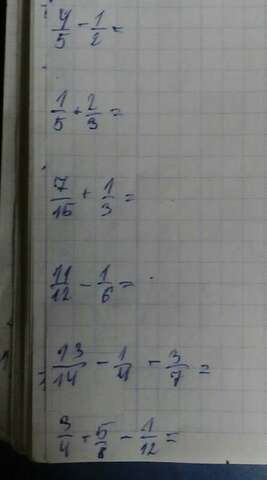 4/5 - 1/2 =
1/5 + 2/3 =
7/15 + 1/3 =
11/12 - 1/6 =
13/14 - 1/4 + 3/7 =
3/4 + 5/8 - 1/12 =